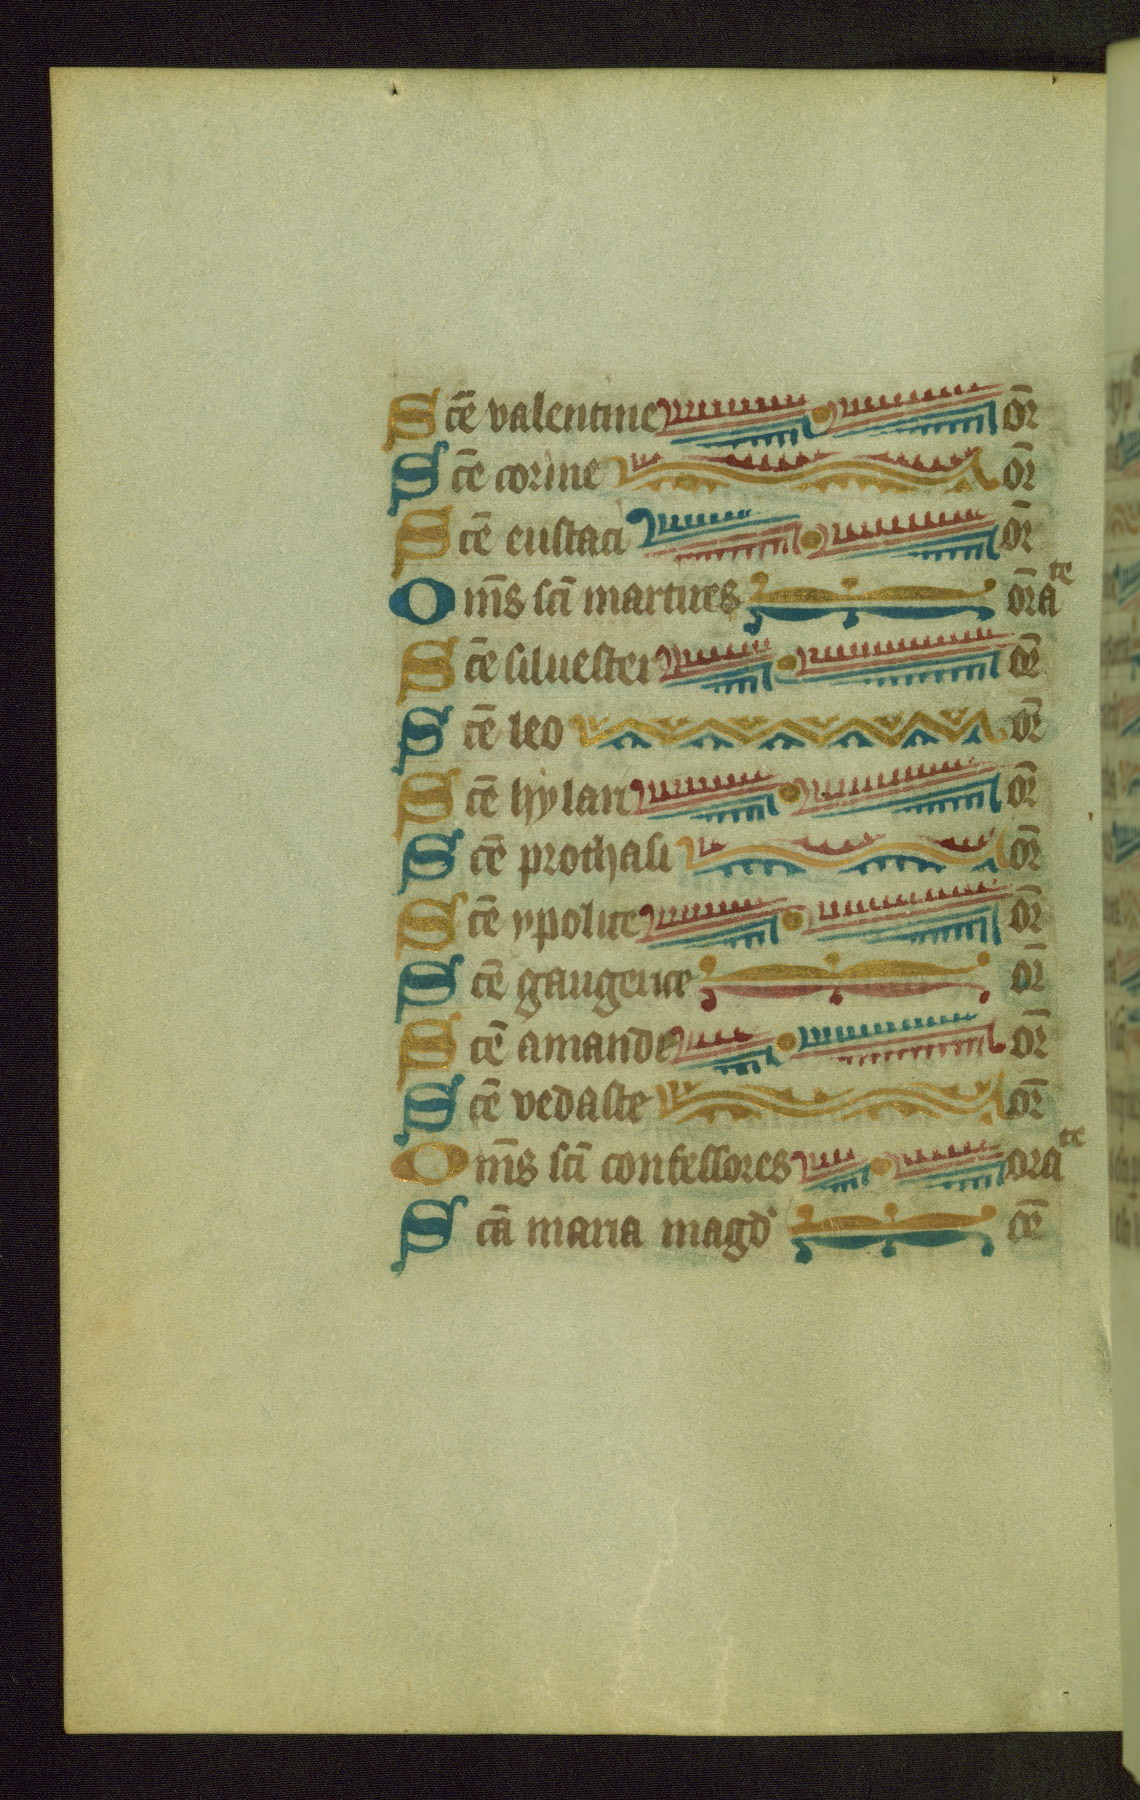 Scē valentine or̄
Scē corine or̄
Scē eustaci or̄
Om̄s sc̄i martires or̄ate
Scē siluester or̄
Scē leo or̄
Scē hylari or̄
Scē prothasi or̄
Scē ypolite or̄
Scē gaugerice or̄
Scē amande or̄
Scē vedaste or̄
Om̄s sc̄i confessores orate
Scā maria magd' or̄